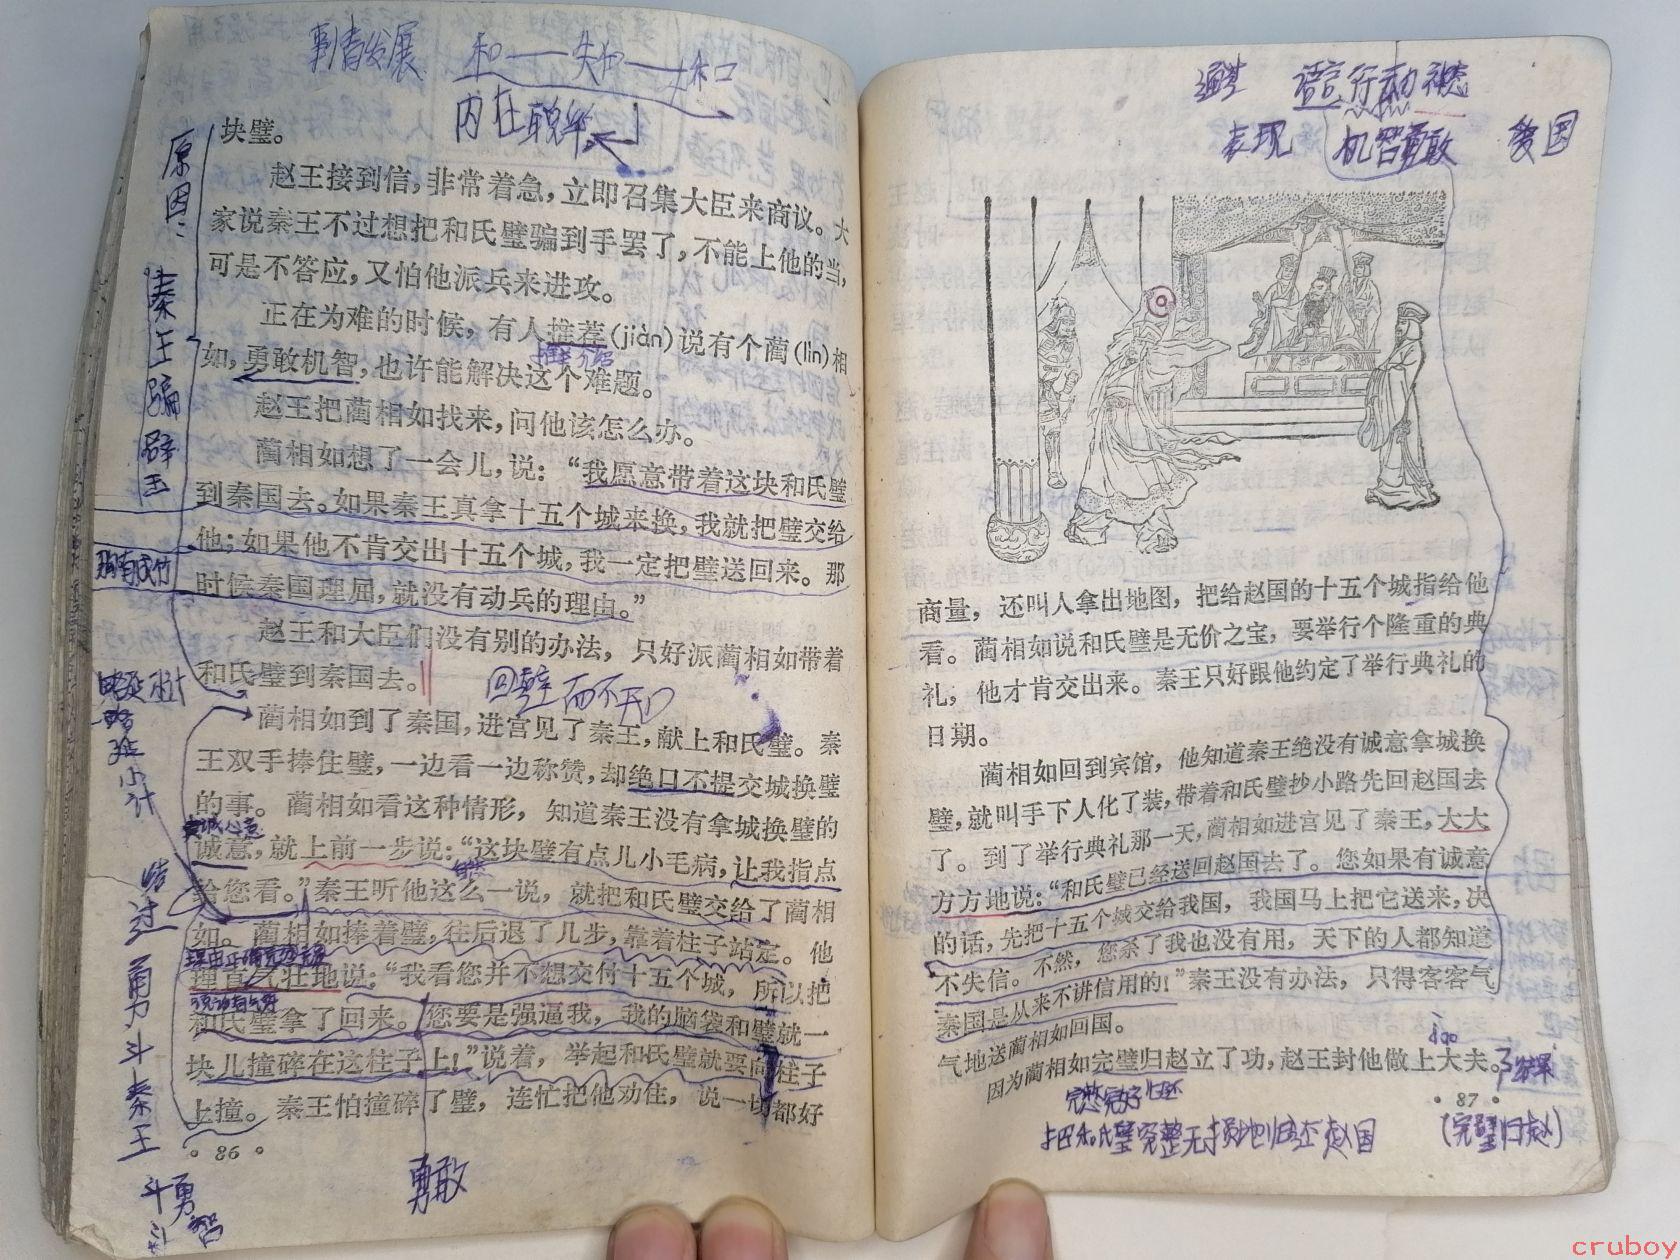 事情发展 和——失和——和
内在联系
块璧。
赵王接到信，非常着急，立即召集大臣来商议。大
家说秦王不过想把和氏璧骗到手罢了，不能上他的当，
可是不答应，又怕他派兵来进攻。
正在为难的时候，有人推荐(jiàn)说有个蔺(lìn)相
介绍
如，勇敢机智，也许能解决这个难题。
赵王把蔺相如找来，问他该怎么办。
蔺相如想了一会儿，说：“我愿意带着这块和氏璧
到秦国去。如果秦王真拿十五个城来换，我就把璧交给
他；如果他不肯交出十五个城，我一定把璧送回来。那
时候秦国理屈，就没有动兵的理由。”
赵王和大臣们没有别的办法，只好派蔺相如带着
和氏璧到秦国去。
回璧而不开口
蔺相如到了秦国，进宫见了秦王，献上和氏璧。秦
王双手捧住璧，一边看一边称赞，却绝口不提交城换璧
的事。蔺相如看这种情形，知道秦王没有拿城换璧的
诚意，就上前一步说：“这块璧有点儿小毛病，让我指点
给您看。”秦王听他这么一说，就把和氏璧交给了蔺相
如。蔺相如捧着璧，往后退了几步，靠着柱子站定。他
理直气壮地说：“我看您并不想交付十五个城，所以把
和氏璧拿了回来。您要是强逼我，我的脑袋和璧就一
块儿撞碎在这柱子上！”说着，举起和氏璧就要向柱子
上撞。秦王怕撞碎了璧，连忙把他劝住，说一切都好
• 86 •
勇敢
原因：
秦王骗璧
胸有成竹
经过
勇斗秦王
斗勇
斗智
语言行动神态
表现 机智勇敢 爱国
商量，还叫人拿出地图，把给赵国的十五个城指给他
看。蔺相如说和氏璧是无价之宝，要举行个隆重的典
礼，他才肯交出来。秦王只好跟他约定了举行典礼的
日期。
蔺相如回到宾馆，他知道秦王绝没有诚意拿城换
璧，就叫手下人化了装，带着和氏璧抄小路先回赵国去
了。到了举行典礼那一天，蔺相如进宫见了秦王，大大
方方地说：“和氏璧已经送回赵国去了。您如果有诚意
的话，先把十五个城交给我国，我国马上把它送来，决
不失信。不然，您杀了我也没有用，天下的人都知道
秦国是从来不讲信用的！”秦王没有办法，只得客客气
气地送蔺相如回国。
因为蔺相如完璧归赵立了功，赵王封他做上大夫。
结果
完整完好 归还
• 87 •
把和氏璧完整无损地归还赵国 （完璧归赵）
cruboy